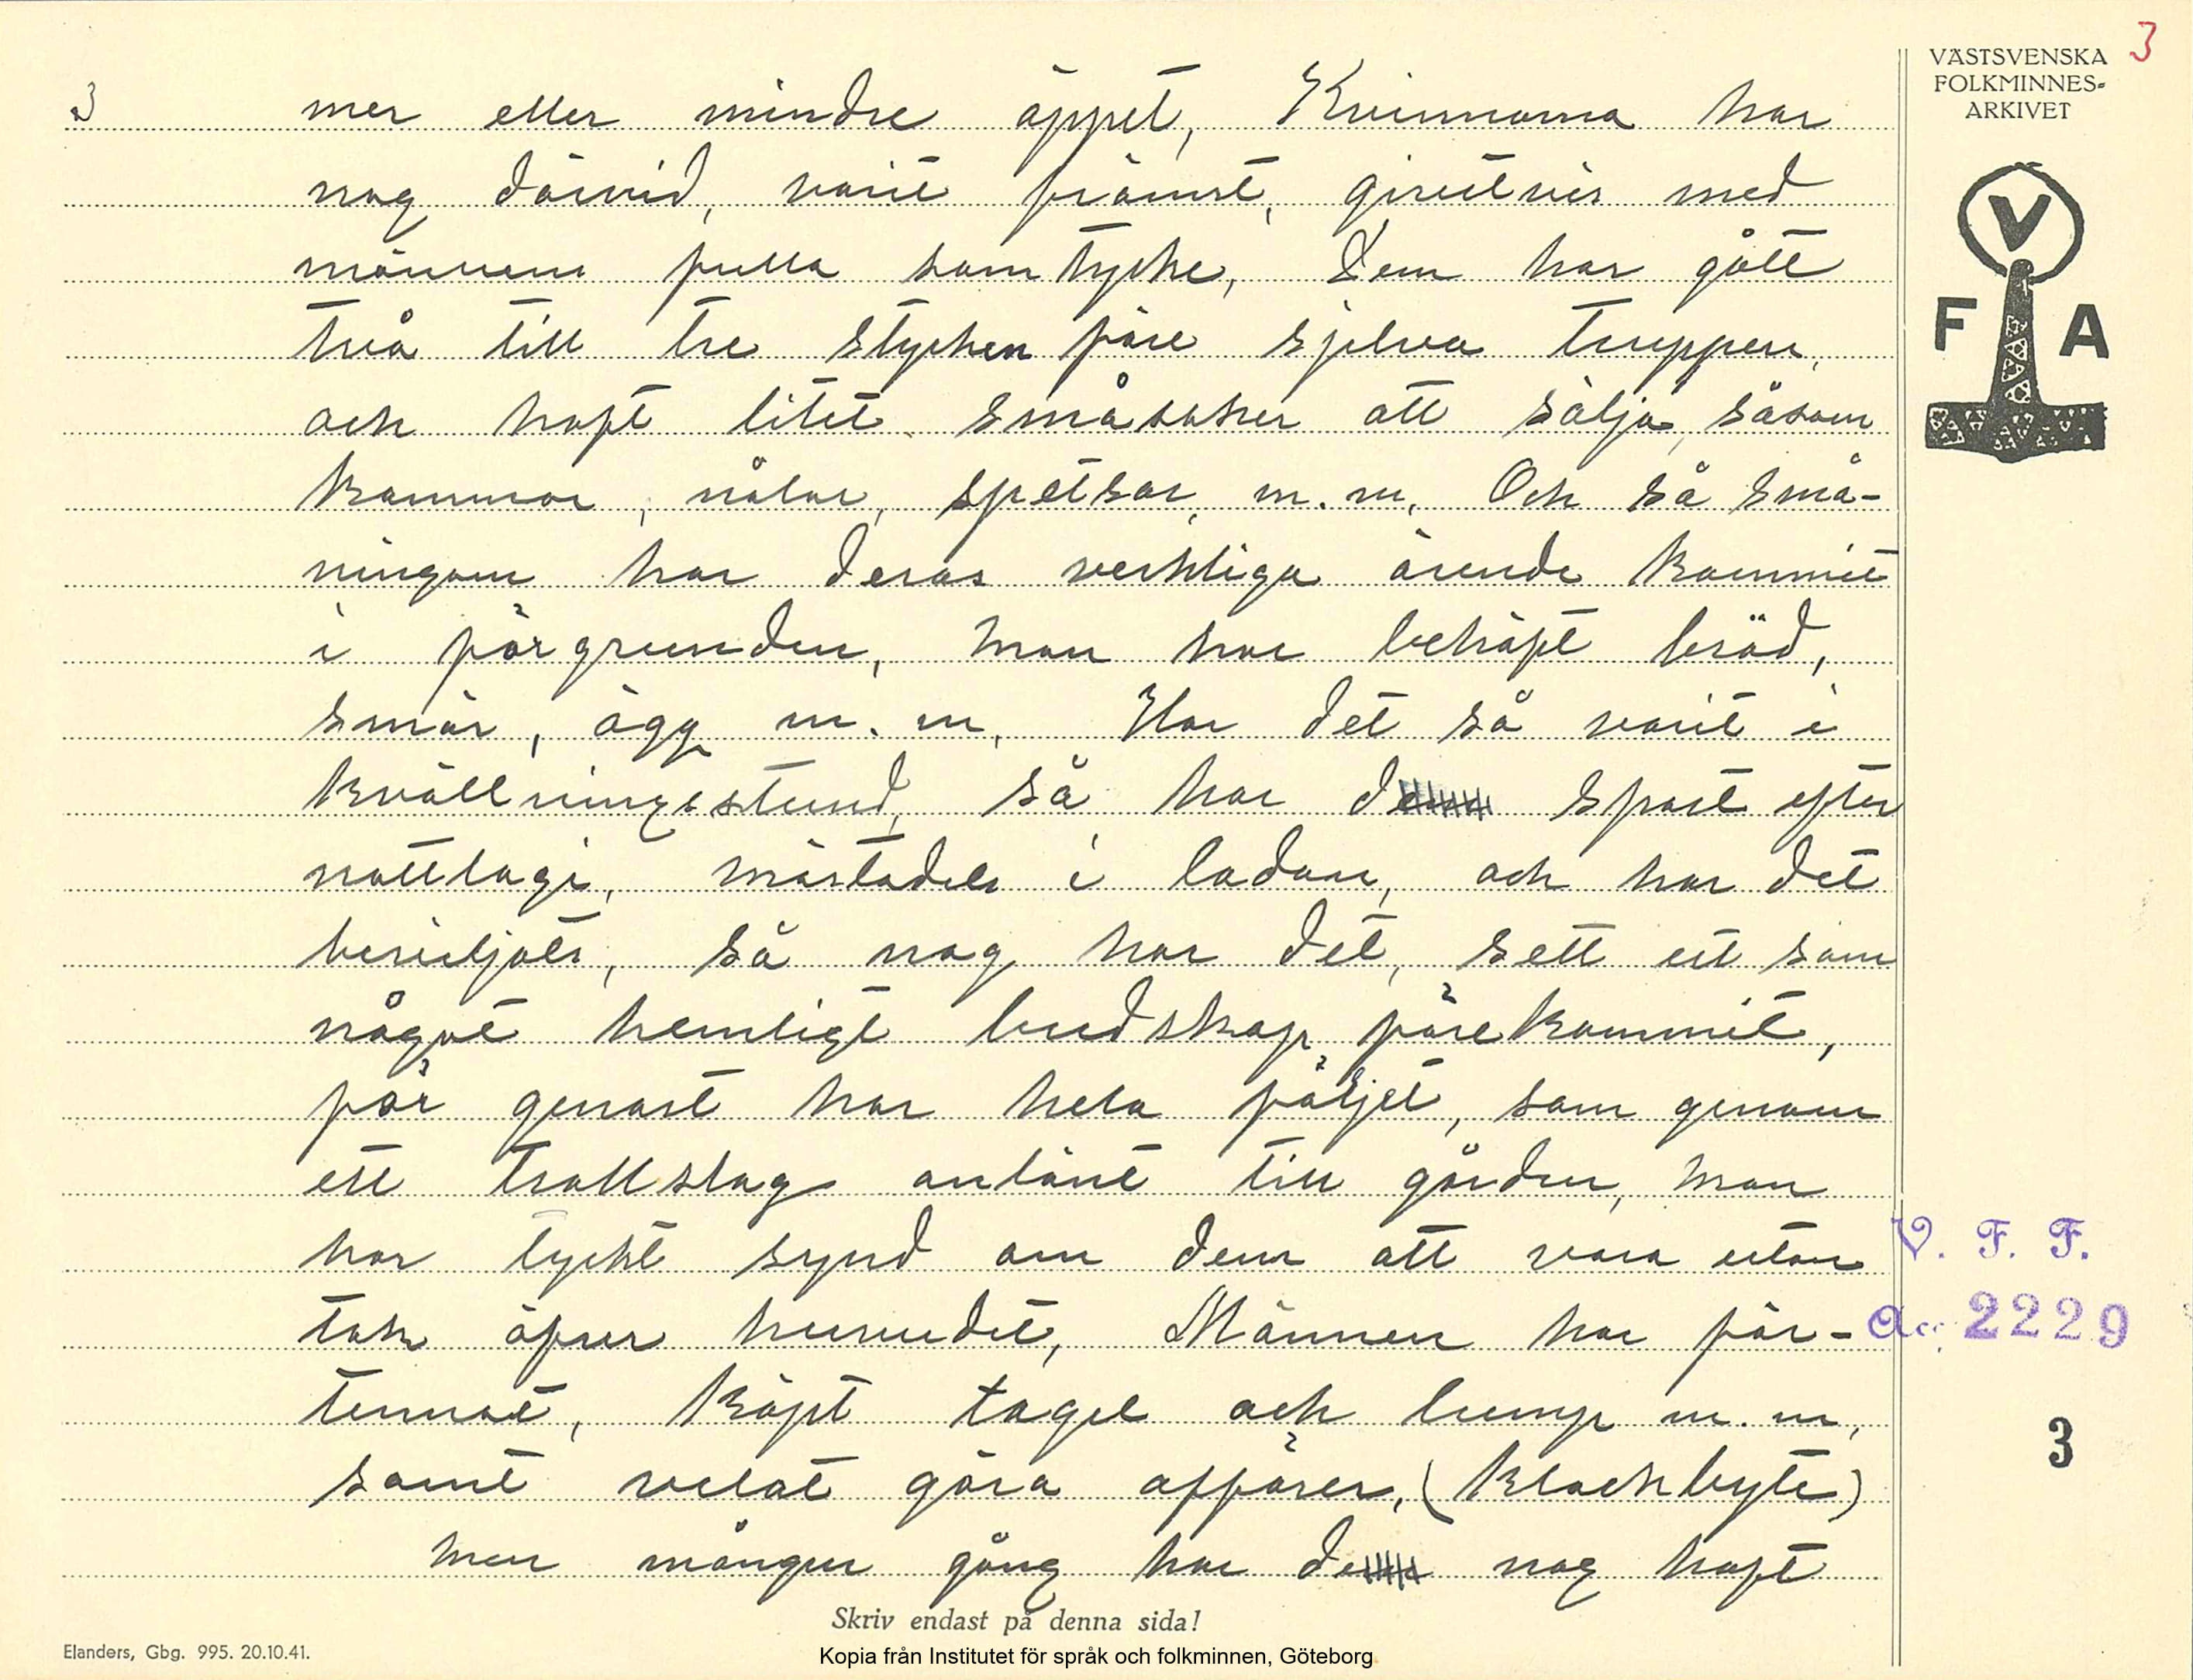 3
VÄSTSVENSKA
FOLKMINNES-
ARKIVET
V
F A
3 mer eller mindre öppet, Kvinnorna har
nog därvid, varit främst, girvetvis med
männens fulla samtycke, Dem har gått
två till tre stycken före sjelva truppen,
och haft litet småsaker att sälja, såsom
kammar, nålar, spetsar, m.m, Och så små-
ningom har deras verkliga ärende kommit
i förgrunden, Man har behöft bröd,
smör, ägg m.m, Har det så varit i
kvällningsstund, så har de sport efter
nattlogi, mästadels i ladan, och har det
beviljats, så nog har det, sett ut som
något hemligt budskap förekommit,
för genast har hela följet, som genom
ett trollslag anlänt till gården, Man
har tyckt synd om dem att vara utan
tak öfver huvudet, Männen har för-
tennat, köpt tagel och lump m.m,
samt velat göra affärer, (Klockbyte)
Men mången gång har de nog haft
V. F. F.
Acc. 2229
3
Skriv endast på denna sida!
Elanders, Gbg. 995. 20.10.41.
Kopia från Institutet för språk och folkminnen, Göteborg